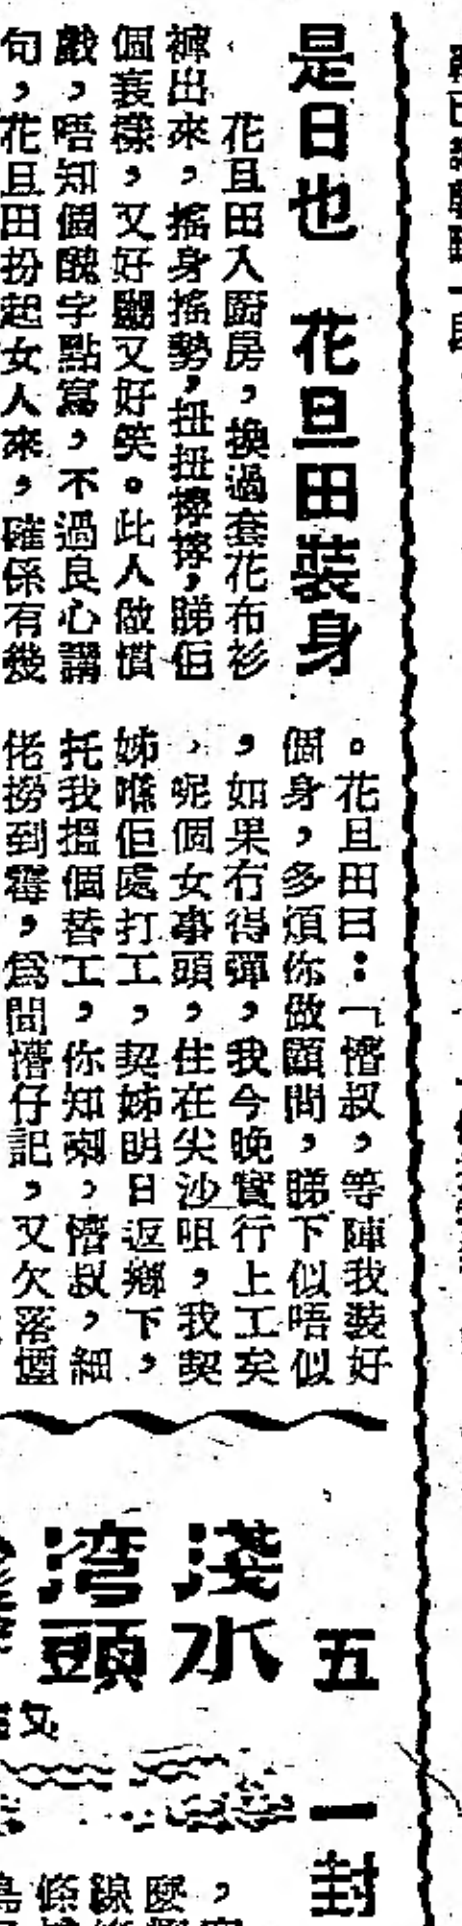 是日也 花旦田裝身
花旦田入廚房，換過套花布衫
褲出來，搖身搖勢，扭扭擰擰，睇佢
個衰樣，又好嬲又好笑。此人做慣
戲，唔知個醜字點寫，不過良心講
句，花旦田扮起女人來，確係有幾
。花旦田曰：「懵叔，等陣我裝好
個身，多煩你做顧問，睇下似唔似
，如果冇得彈，我今晚實行上工矣
，呢個女事頭，住在尖沙咀，我契
姊喺佢處打工，契姊明日返鄉下，
托我搵個替工，你知喇，懵叔，細
佬撈到霉，為間懵仔記，又欠落煙
五
一封
淺水
灣頭